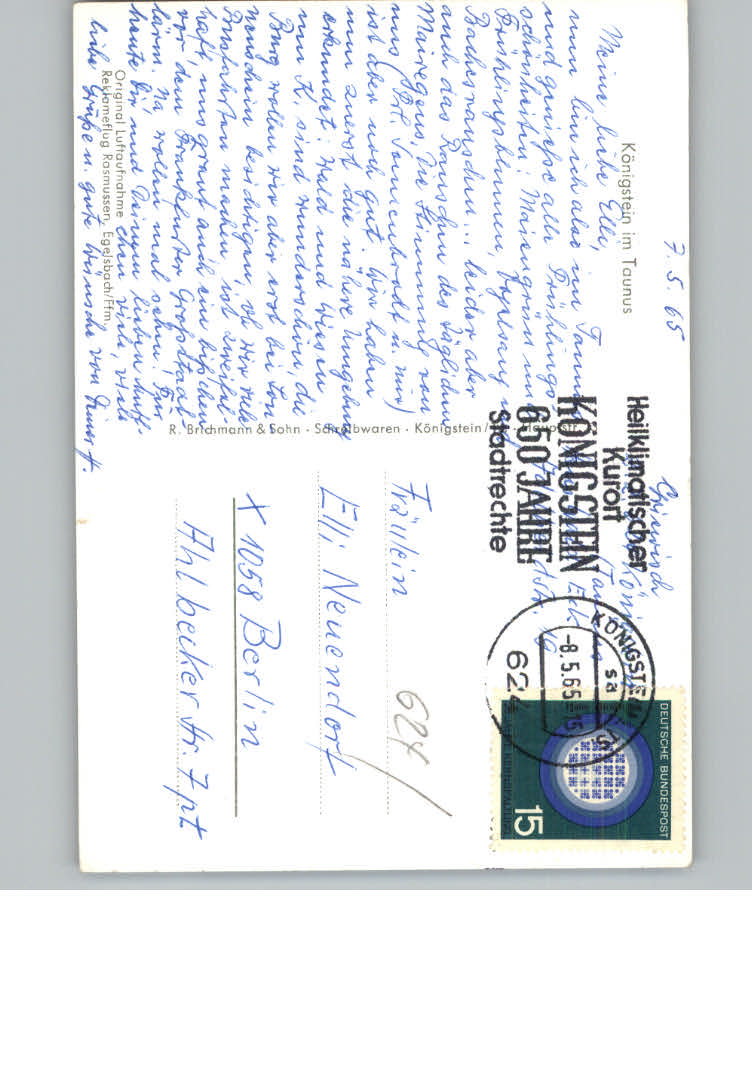 Königstein im Taunus
7. 5. 65
Meine liebe Elli,
nun bin ich also im Taunus
und genieße alle Frühlings-
schönheiten: Maiengrün und
Frühlingsblumen, Vogelsang und
Bachesrauschen... leider aber
auch das Rauschen des täglichen
Mairegens. Die Stimmung von
uns (Frl. und mir)
ist aber noch gut. Wir haben
nun zuerst die nähere Umgebung
erkundet; Wald und Wiesen
um K. sind wunderschön, die
Burg wollen wir aber erst bei Son-
nenschein besichtigen, ob wir viele
Busfahrten machen, ist zweifel-
haft, uns graut auch ein bißchen
vor dem Frankfurter Großstadt-
lärm. Na wollen mal sehen. Für
heute Dir und Deinen lieben
viele, viele
liebe Grüße u. gute Wünsche von Deiner
Original Luftaufnahme
Reklameflug Rasmussen, Egelsbach/Ffm
R. Brichmann & Sohn · Schreibwaren · Königstein/Ts. · Hauptstr.
Heilklimatischer
Kurort
KÖNIGSTEIN
650 JAHRE
Stadtrechte
KÖNIGSTEIN
sa
-8.5.65-15
624
DEUTSCHE BUNDESPOST
15
Fräulein
624
Elli Neuendorf
X 1058 Berlin
Ahlbecker Str. 7 pt